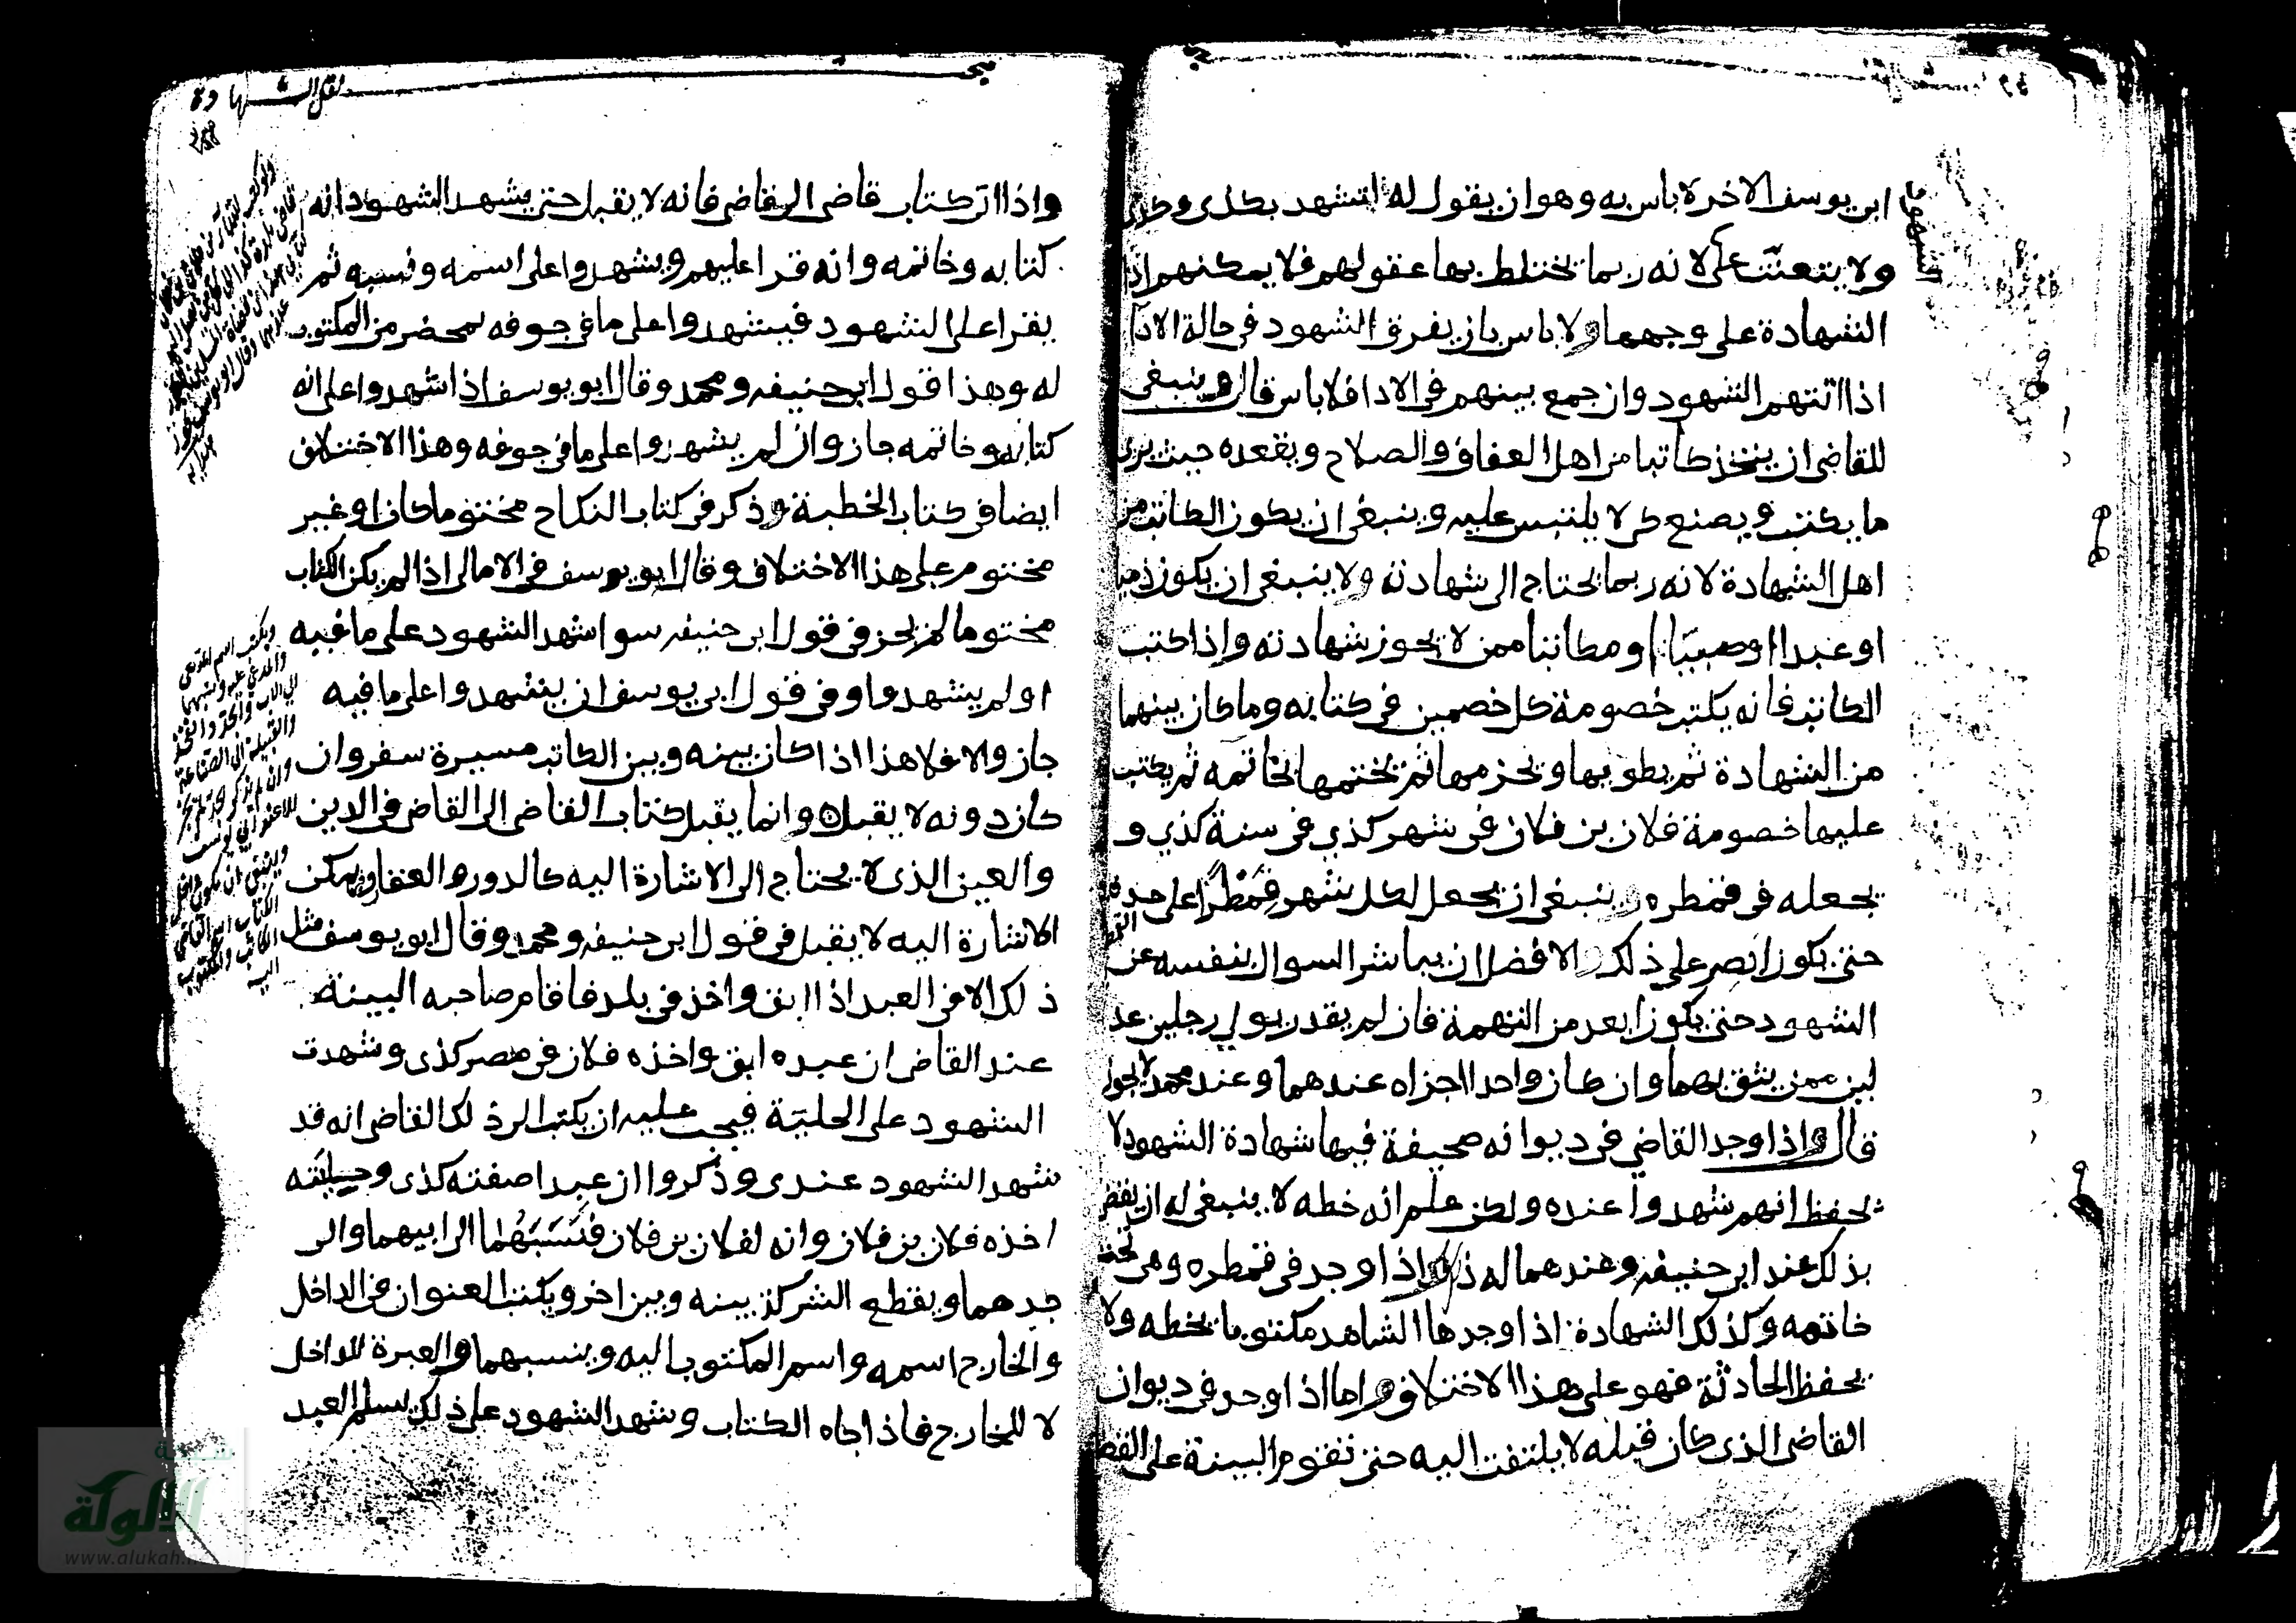 ابى يوسف الاخر لا باس به وهو ان يقول له اتشهد بكذى وكذى
ولا يتعنت على لانه ربما تختلط بها عقولهم فلا يمكنهم اذا
الشهادة على وجهها ولا باس بان يفرق الشهود فى حالة الادا
اذا اتهم الشهود وان جمع بينهم فى الادا فلا باس قال وينبغى
للقاضى ان يتخذ كاتبا من اهل العفاف والصلاح ويقعده حيث يرى
ما يكتب ويصنع كى لا يلتبس عليه وينبغى ان يكون الكاتب من
اهل الشهادة لانه ربما يحتاج الى شهادته ولا ينبغى ان يكون ذميا
او عبدا او صبيا او مكاتبا ممن لا يجوز شهادته واذا كتب
الكاتب فانه يكتب خصومة كل خصمين فى كتابه وما كان بينهما
من الشهادة ثم يطويها ويحزمها ثم يختمها بخاتمه ثم يكتب
عليها خصومة فلان بن فلان فى شهر كذى فى سنة كذي و
يجعله فى قمطره وينبغى ان يجعل لكل شهر قمطرا على حدة
حتى يكون ابصر على ذلك والافضل ان يباشر السوال بنفسه عن
الشهود حتى يكون ابعد من التهمة فان لم يقدر يولي رجلين عد
لين ممن يثق بهما وان كان واحدا اجزاه عندهما وعند محمد لا يجوز
قال واذا وجد القاضي فى ديوانه صحيفة فيها شهادة الشهود لا
يحفظ انهم شهدوا عنده ولكن علم انه خطه لا ينبغى له ان يقضى
بذلك عند ابى حنيفه وعندهما له ذلك اذا وجد فى قمطره وهى تحت
خاتمه وكذلك الشهادة اذا وجدها الشاهد مكتوبا بخطه ولا
يحفظ الحادثة فهو على هذا الاختلاف واما اذا وجد فى ديوان
القاضى الذى كان قبله لا يلتفت اليه حتى تقوم البينة على القضا
الشهود
نقل الشهادة
واذا اتى كتاب قاضى الى قاضى فانه لا يقبل حتى يشهد الشهود انه
كتابه وخاتمه وانه قرا عليهم ويشهدوا على اسمه ونسبه ثم
يقرا على الشهود فيشهدوا على ما فى جوفه بمحضر من المكتوب
له وهذا قول ابى حنيفه ومحمد وقال ابو يوسف اذا شهدوا على انه
كتابه وخاتمه جاز وان لم يشهدوا على ما فى جوفه وهذا الاختلاف
ايضا فى كتاب الخطبة وذكر فى كتاب النكاح مختوما كان او غير
مختوم على هذا الاختلاف وقال ابو يوسف فى الامالى اذا لم يكن الكتاب
مختوما لم يجز فى قول ابى حنيفه سوا شهد الشهود على ما فيه
او لم يشهدوا وفى قول ابى يوسف ان يشهدوا على ما فيه
جاز والا فلا هذا اذا كان بينه وبين الكاتب مسيرة سفر وان
كان دونه لا يقبل وانما يقبل كتاب القاضى الى القاضى فى الدين
والعين الذى لا يحتاج الى الاشارة اليه كالدور والعقار ويمكن
الاشارة اليه لا يقبل فى قول ابى حنيفه ومحمد وقال ابو يوسف مثل
ذلك الا فى العبد اذا ابق واخذ فى بلد فاقام صاحبه البينة
عند القاضى ان عبده ابق واخذه فلان فى مصر كذى وشهدت
الشهود على الحلية فيجب عليه ان يكتب الى ذلك القاضى انه قد
شهد الشهود عندى وذكروا ان عبدا صفته كذى وحليته
اخذه فلان بن فلان وانه لفلان بن فلان فنسبهما الى ابيهما والى
جدهما ويقطع الشركة بينه وبين اخر ويكتب العنوان فى الداخل
والخارج اسمه واسم المكتوب اليه وينسبهما والعبرة للداخل
لا للخارج فاذا جاه الكتاب وشهد الشهود على ذلك يسلم العبد
ويكتب اسم المدعى
والمدعى عليه وينسبهما
الى الاب والجد والفخذ
والقبيلة الى الصناعة
وان لم يذكر الجد لم يجز
وينبغى ان يكون داخل
الكتاب اسم القاضى
الكاتب والمكتوب
اليه
شبكة
الألوكة
www.alukah.n